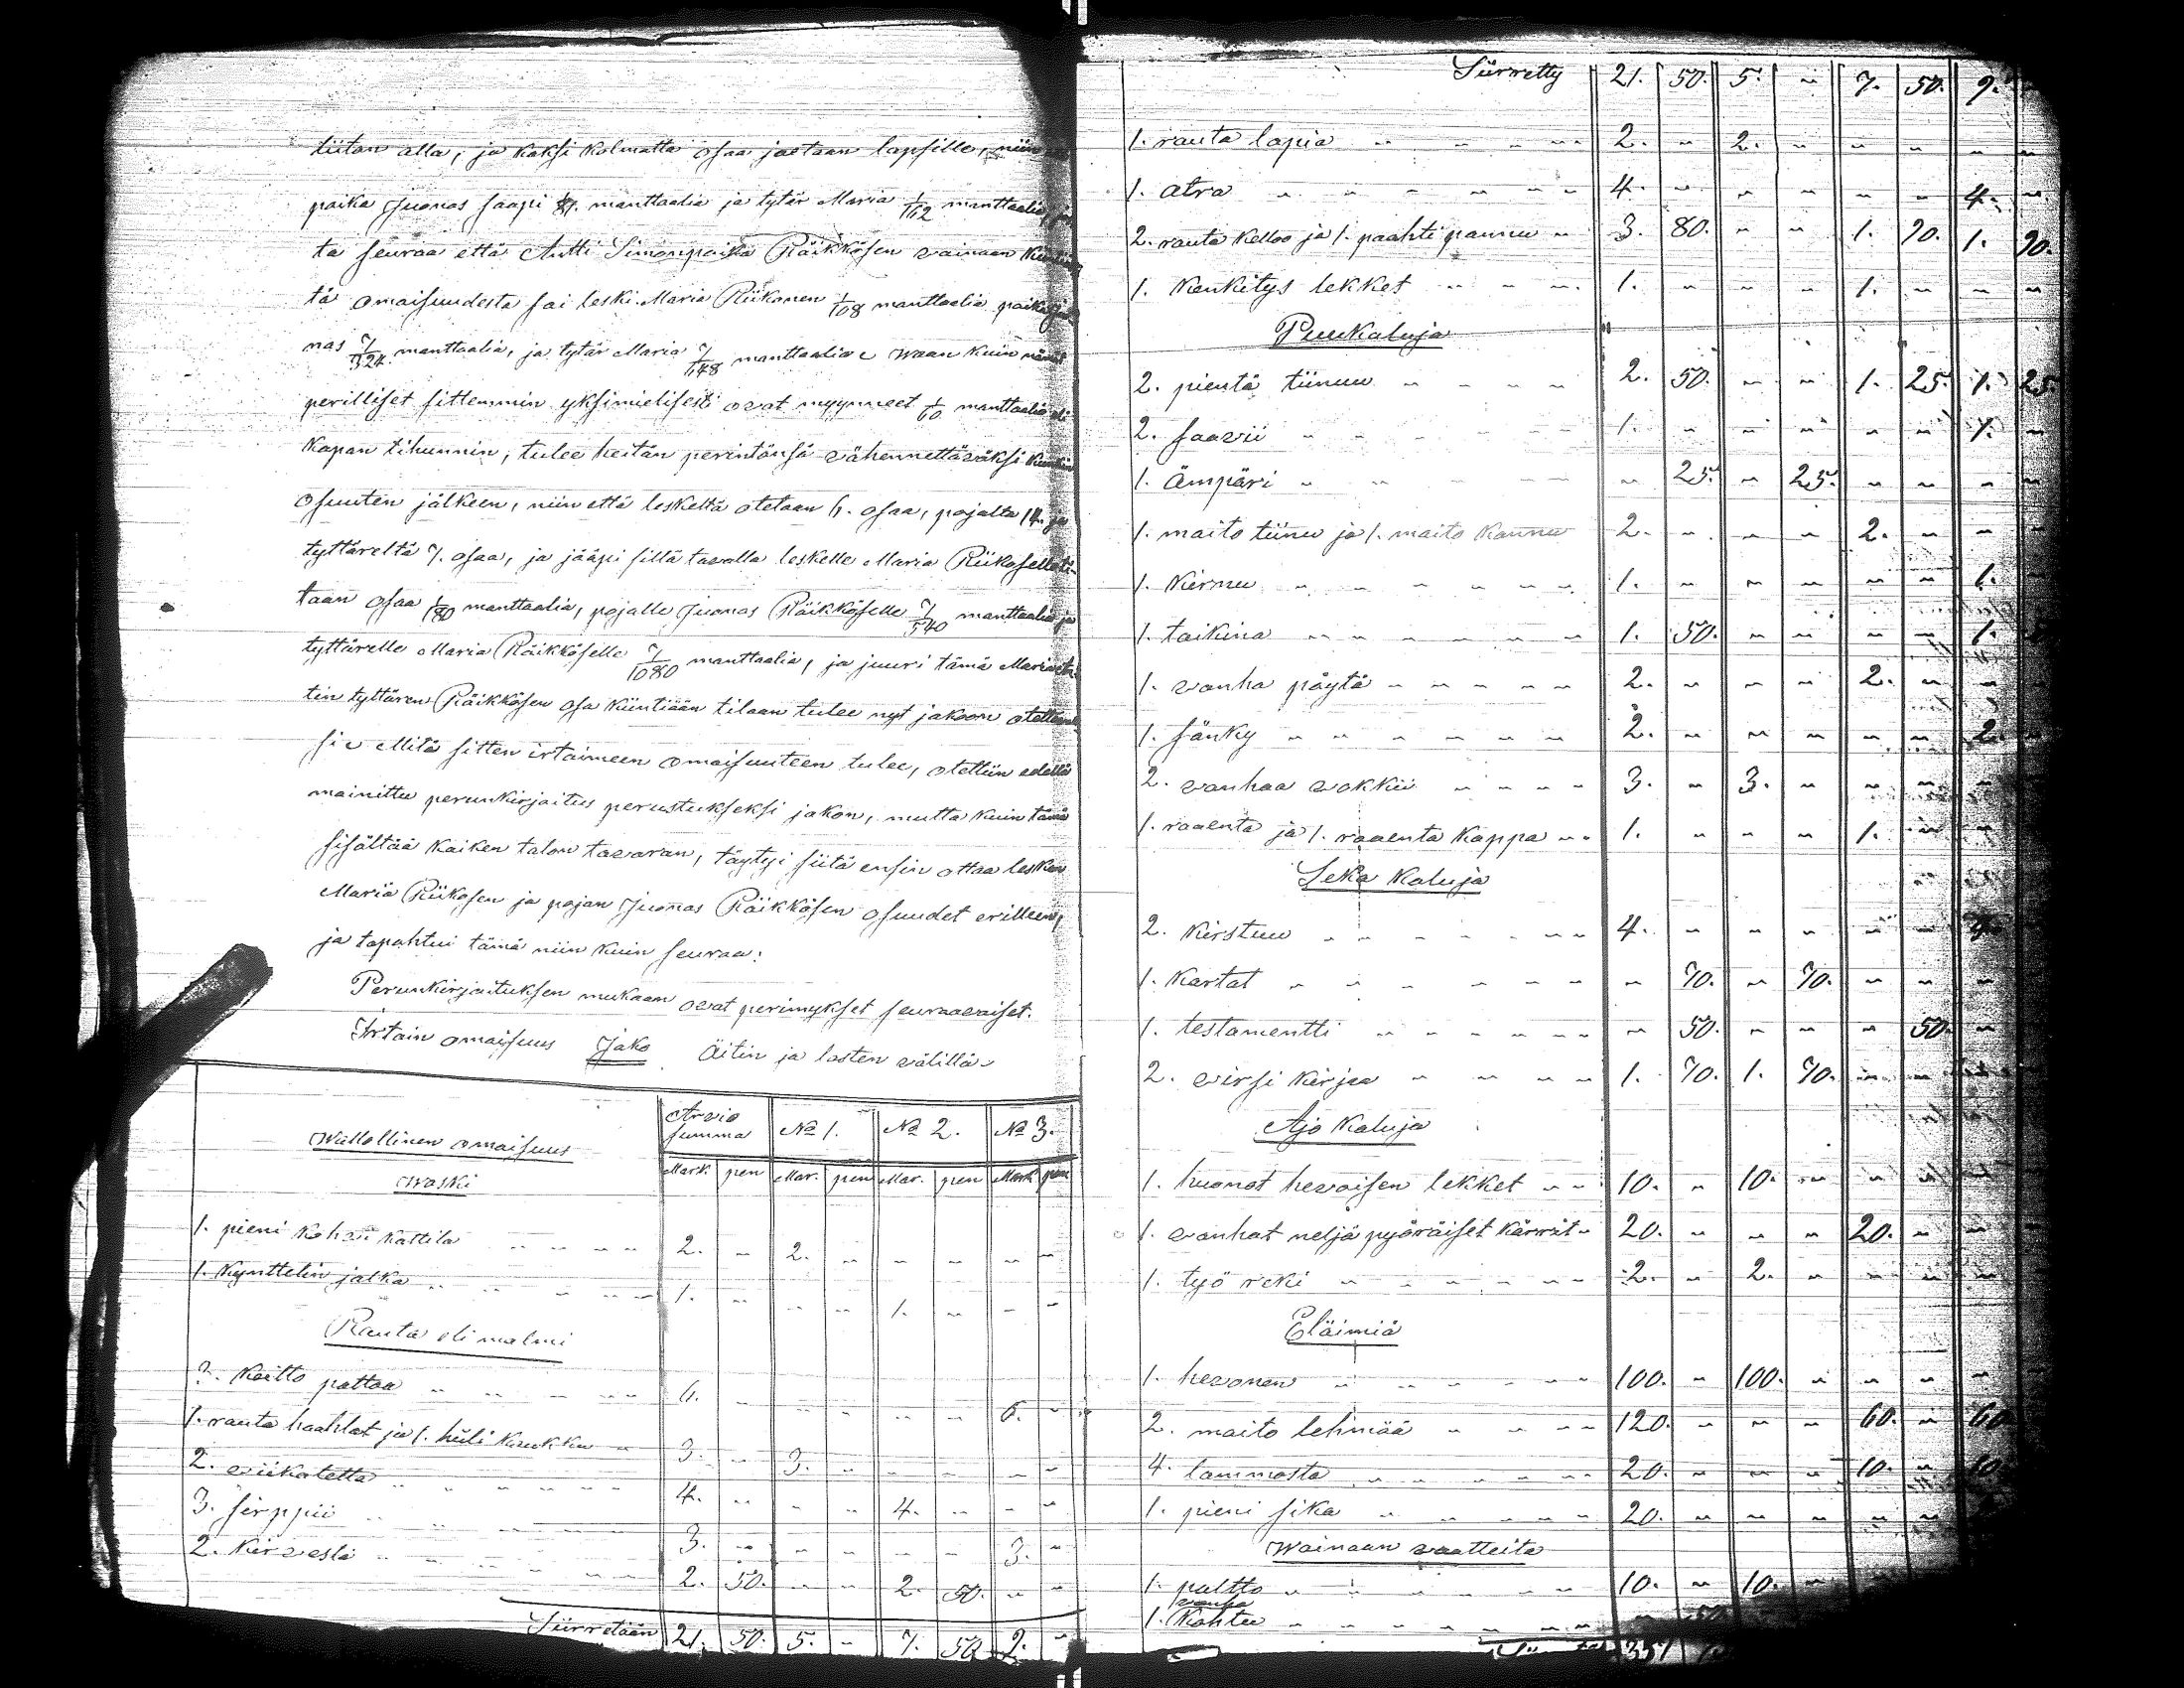 tiitan alla, ja kaksi kolmatta osaa jaetaan lapsille, niin
poika Juonas saapi manttaalia ja tytär Maria 1/162 manttaalia,
ta seuraa että Antti Simonpoika Räikkösen vainaan
tä omaisuudesta sai leski Maria Riikonen 1/108 manttaalia poika
nas 7/324 manttaalia, ja tytär Maria 7/648 manttaalia. Waan kuin nämät
perilliset sittemmin yksimielisesti ovat myynneet 1/60 manttaalia eli
Kapan tihunnin, tulee heitän perintönsä vähennettäväksi kunkin
osuuten jälkeen, niin että leskeltä otetaan 6. osaa, pojalta 14. ja
tyttäreltä 7. osaa, ja jääpi sillä tavalla leskelle Maria Riikoselle ti-
taan osaa 1/180 manttaalia, pojalle Juonas Räikköselle 7/540 manttaalia ja
tyttärelle Maria Räikköselle 7/1080 manttaalia, ja juuri tämä Maria An-
tin tyttären Räikkösen osa kiintiään tilaan tulee nyt jakoon otettavak
si. Mitä sitten irtaimeen omaisuuteen tulee, otettiin edellä
mainittu perunkirjoitus perustukseksi jakon, mutta kuin tämä
sisältää kaiken talon tavaran, täytyi siitä ensin ottaa lesken
Maria Riikosen ja pojan Juonas Räikkösen osuudet erilleen,
ja tapahtui tämä niin kuin seuraa:
Perunkirjoituksen mukaan ovat perimykset seuraavaiset.
Irtain omaisuus Jako Äitin ja lasten välillä
Wallollinen omaisuus | Arvio summa | No 1. | No 2. | No 3.
Waski | Mark. | pen | Mar. | pen | Mar. | pen | Mark | pen
1. pieni kahvi kattila 2. " 2. " " " " "
1. Kynttelin jalka 1. " " " 1. " " "
Rauta eli malmi
2. Keitto pattaa 6. " " " " " 6. "
1. rauta haahlat ja 1. hiili koukku 3. " 3. " " " " "
2. viikatetta 4. " " " 4. " " "
3. sirppii 3. " " " " " 3. "
2. kirvestä 2. 50. " " 2. 50. " "
Siirretään 21. 50. 5. " 7. 50. 9. "
Siirretty 21. 50. 5. " 7. 50. 9.
1. rauta lapia 2. " 2. " " " " "
1. atra 4. " " " " " 4. "
2. rauta kelloo ja 1. paahti pannu 3. 80. " " 1. 90. 1. 90.
1. Kenkitys lekket 1. " " " 1. " " "
Puukaluja
2. pientä tiinuu 2. 50. " " 1. 25. 1. 25
2. saavii 1. " " " " " 1. "
1. Ämpäri " 25. " 25. " " " "
1. maito tiinu ja 1. maito kannu 2. " " " 2. " " "
1. Kirnu 1. " " " " " 1.
1. taikina 1. 50. " " " " 1.
1. vanha pöytä 2. " " " 2. " "
1. sänky 2. " " " " " 2.
2. vanhaa vokkii 3. " 3. " " " "
1. raaenta ja 1. raaenta kappa 1. " " " 1. " "
Seka kaluja
2. Kirstuu 4. " " " " " 4.
1. Kartat " 70. " 70. " " "
1. testamentti " 50. " " " 50. "
2. virsi kirjaa 1. 70. 1. 70. " "
Ajo kaluja
1. huonot hevoisen lekket 10. " 10. " " "
1. vanhat neljä pyöräiset kärrit 20. " " " 20. " "
1. työ reki 2. " 2. " " " "
Eläimiä
1. hevonen 100. " 100. " " " "
2. maito lehmää 120. " " " 60. " 60
4. lammasta 20. " " " 10. " 10.
1. pieni sika 20. " " " " "
Wainaan vaatteita
1. paltto 10. " 10. "
1. vanha Kahtu " 50.
351